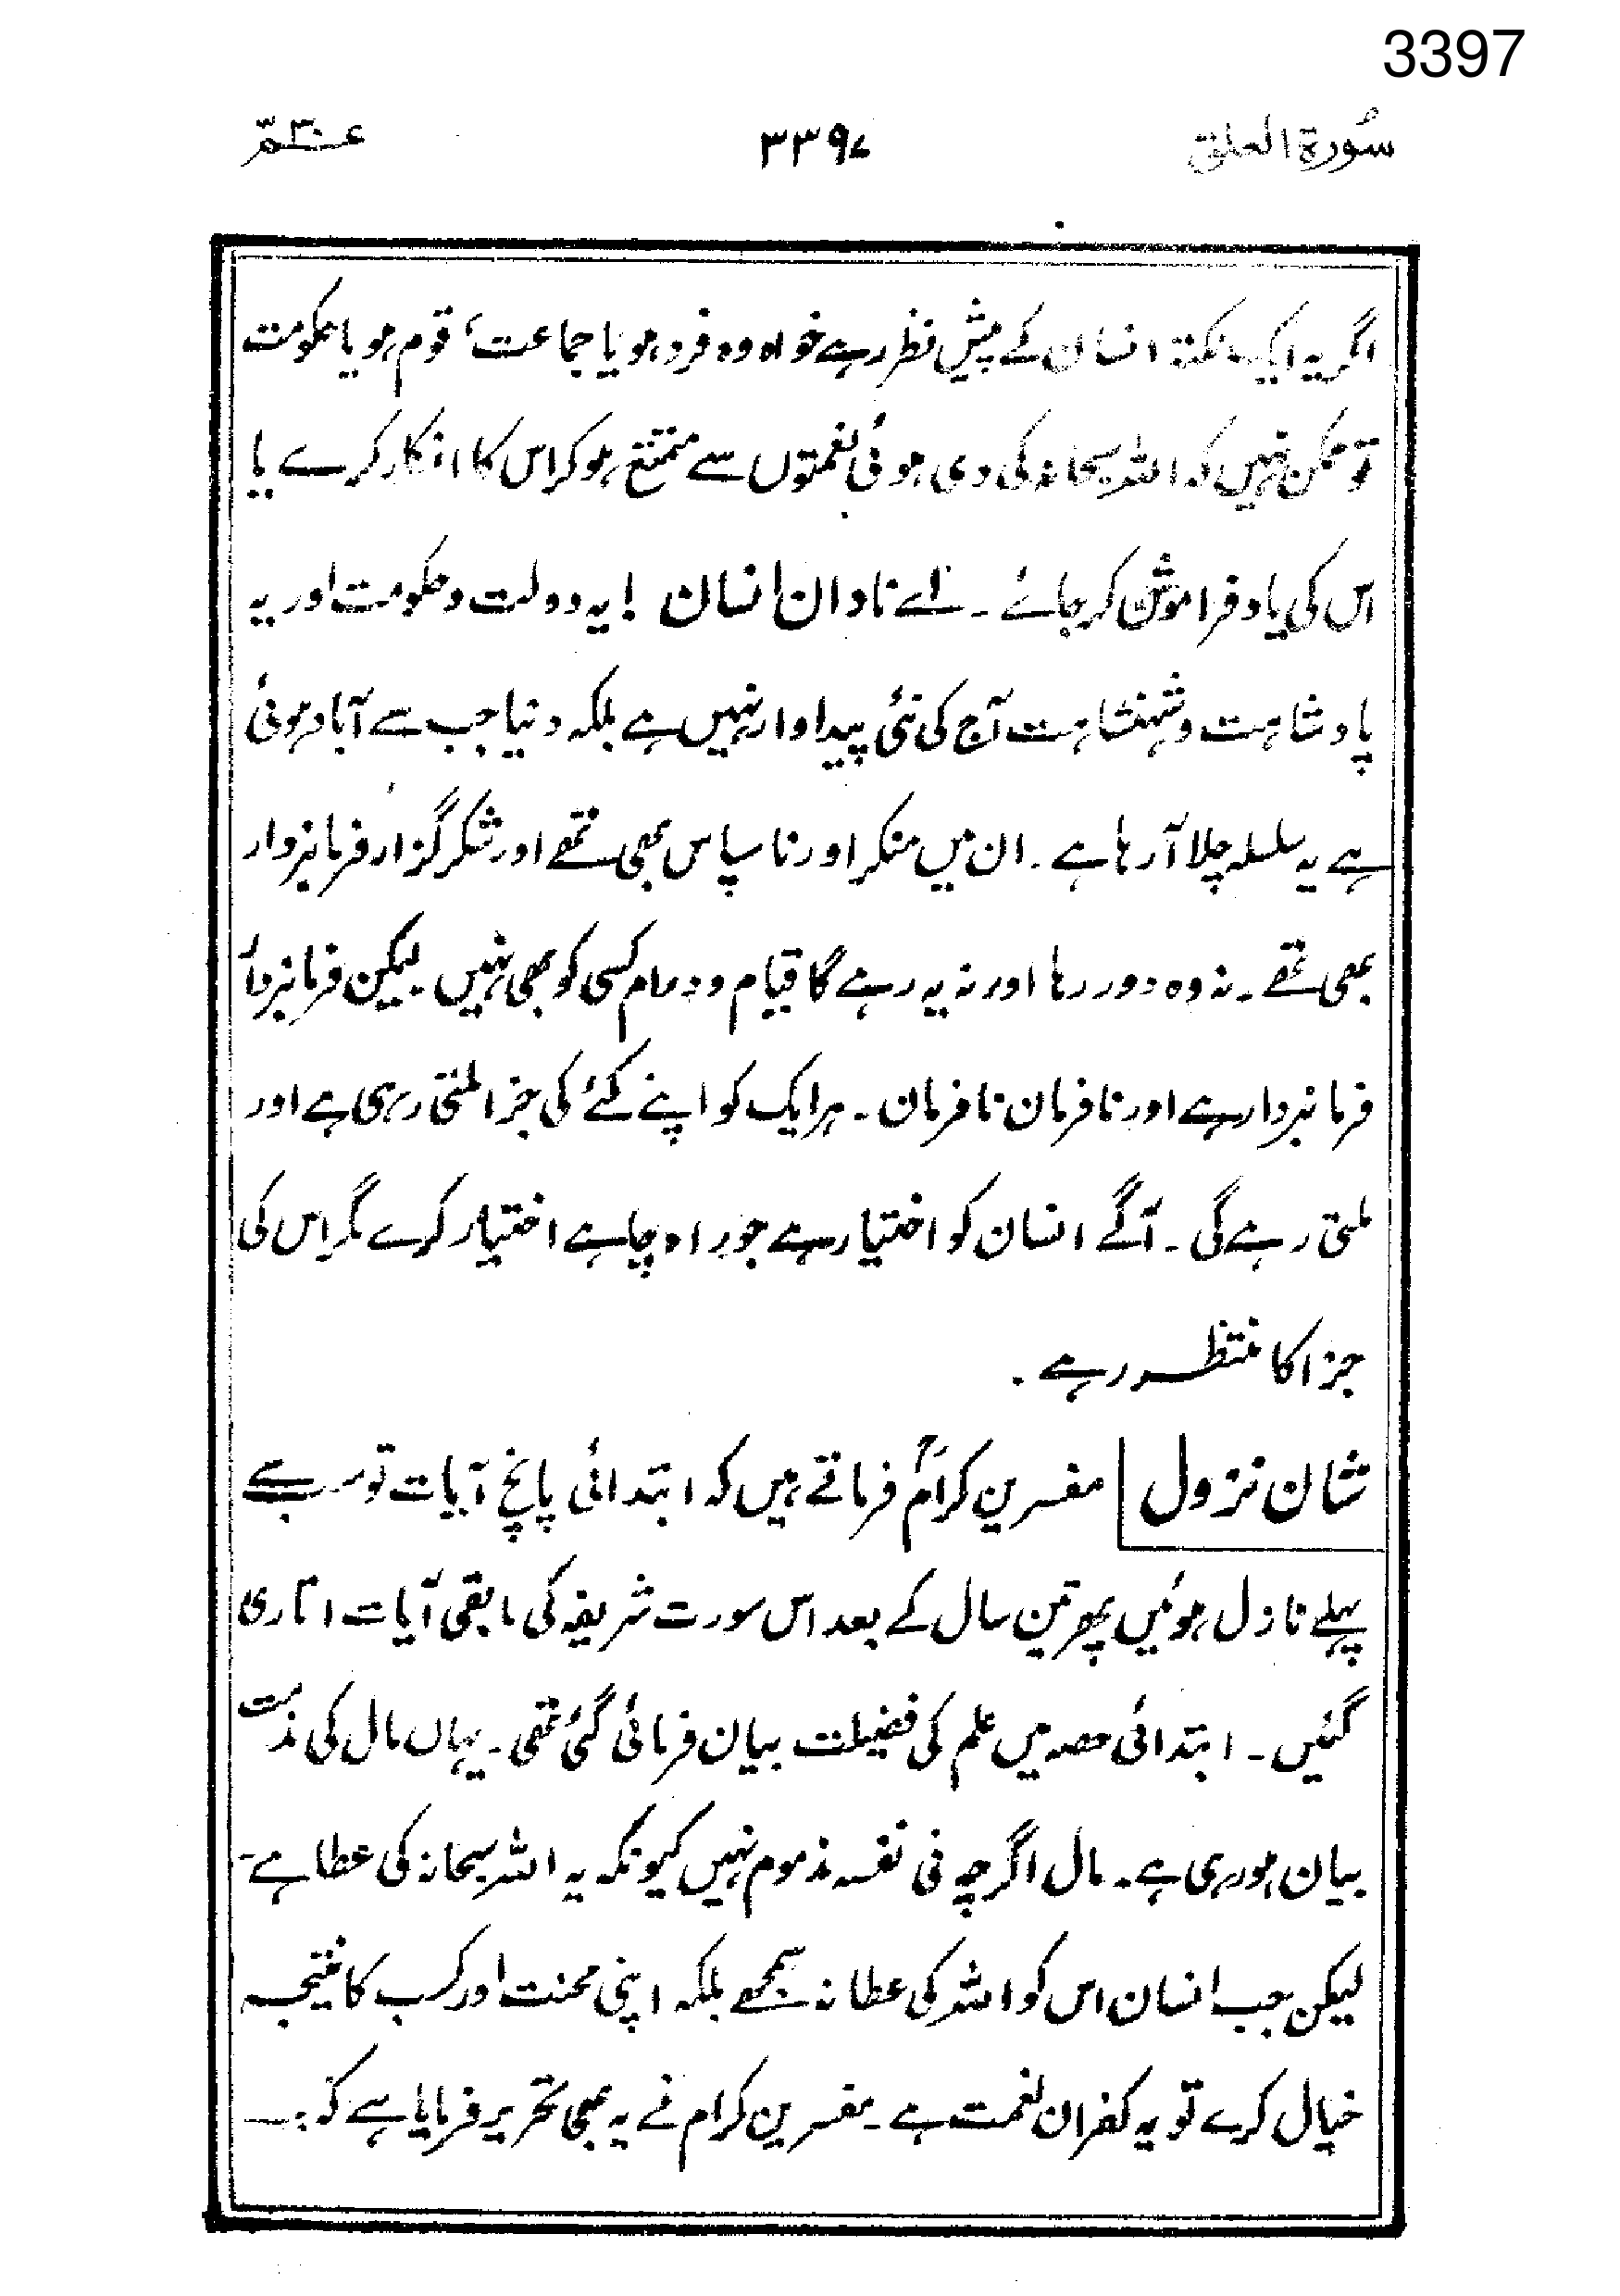 3397
سُورة العلق ۳۳۹۷ عـمّ ۳۰
اگر یہ ایک نکتہ انسان کے پیش نظر رہے خواہ وہ فرد ہو یا جماعت، قوم ہو یا حکومت
تو ممکن نہیں کہ اللہ سبحانہ کی دی ہوئی نعمتوں سے متمتع ہو کر اس کا انکار کرے یا
اس کی یاد فراموش کر جائے ۔ اے نادان انسان ! یہ دولت و حکومت اور یہ
پادشاہت و شہنشاہت آج کی نئی پیداوار نہیں ہے بلکہ دنیا جب سے آباد ہوئی
ہے یہ سلسلہ چلا آرہا ہے ۔ ان میں منکر اور ناسپاس بھی تھے اور شکر گزار فرمانبردار
بھی تھے ۔ نہ وہ دور رہا اور نہ یہ رہے گا قیام و دوام کسی کو بھی نہیں لیکن فرمانبردار
فرمانبردار ہے اور نافرمان نافرمان ۔ ہر ایک کو اپنے کئے کی جزا ملتی رہی ہے اور
ملتی رہے گی ۔ آگے انسان کو اختیار ہے جو راہ چاہے اختیار کرے مگر اس کی
جزا کا منتظر رہے ۔
شان نزول مفسرین کرامؒ فرماتے ہیں کہ ابتدائی پانچ آیات تو سب سے
پہلے نازل ہوئیں پھر تین سال کے بعد اس سورت شریفہ کی مابقی آیات اتاری
گئیں ۔ ابتدائی حصہ میں علم کی فضیلت بیان فرمائی گئی تھی ۔ یہاں مال کی مذمت
بیان ہو رہی ہے ۔ مال اگرچہ فی نفسہ مذموم نہیں کیونکہ یہ اللہ سبحانہ کی عطا ہے ۔
لیکن جب انسان اس کو اللہ کی عطا نہ سمجھے بلکہ اپنی محنت اور کسب کا نتیجہ
خیال کرے تو یہ کفران نعمت ہے ۔ مفسرین کرام نے یہ بھی تحریر فرمایا ہے کہ :۔